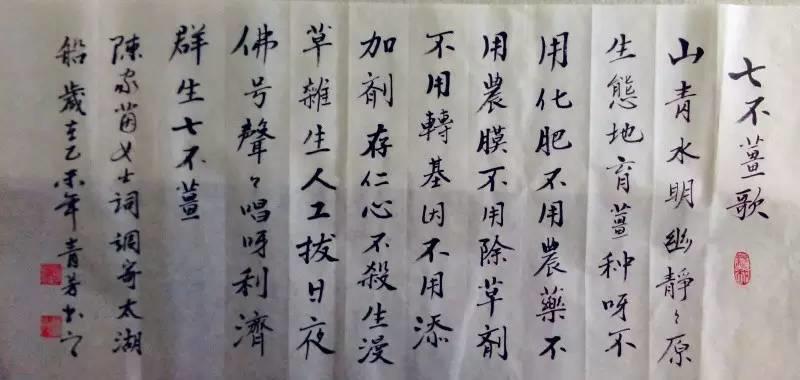 七不薑歌
山青水明幽靜〻原
生態地育薑种呀不
用化肥不用農藥不
用農膜不用除草剂
不用轉基因不用添
加剂存仁心不殺生漫
草雜生人工拔日夜
佛号聲〻唱呀利濟
群生七不薑
陳家茵女士詞調寄太湖
船歲在乙未年青芳书